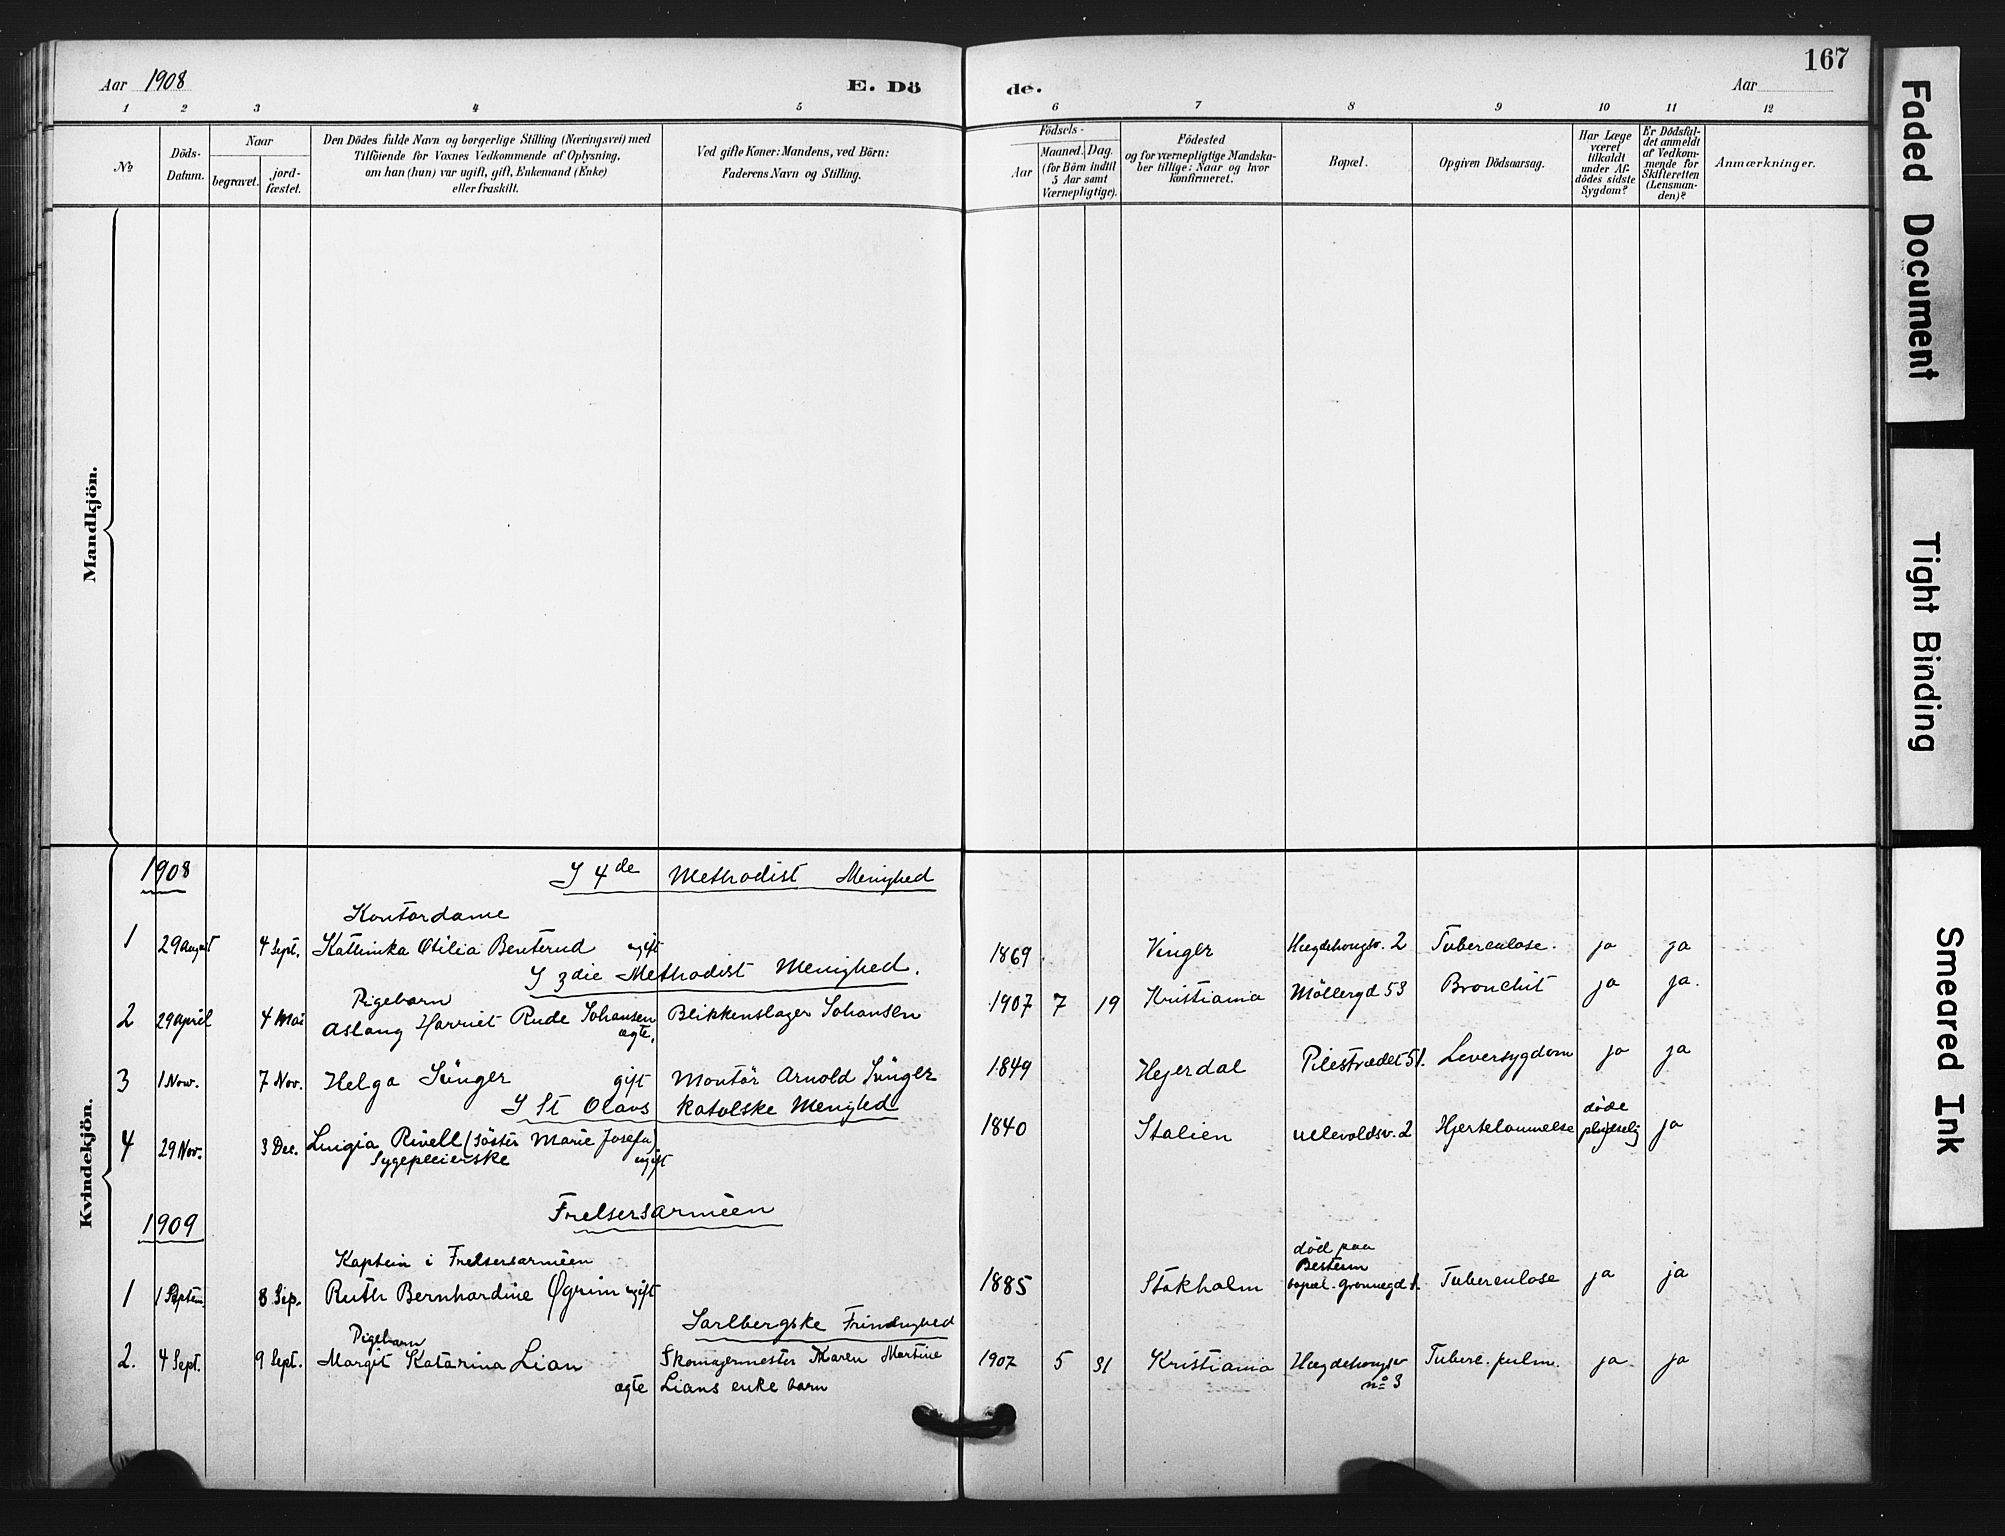 167
Aar 1908
E. Dö
de.
Aar
1 2 3 4 5 6 7 8 9 10 11 12
No
Döds-Datum.
Naar
begravet.
jord-fæstet.
Den Dödes fulde Navn og borgerlige Stilling (Næringsvei) med
Tilföiende for Voxnes Vedkommende af Oplysning,
om han (hun) var ugift, gift, Enkemand (Enke)
eller fraskilt.
Ved gifte Koner: Mandens, ved Börn:
Faderens Navn og Stilling.
Födsels-
Aar
Maaned. Dag.
(for Börn indtil
5 Aar samt
Værnepligtige).
Födested
og for værnepligtige Mandska-
ber tillige: Naar og hvor
konfirmeret.
Bopæl.
Opgiven Dödsaarsag.
Har Læge
været
tilkaldt
under Af-
dödes sidste
Sygdom?
Er Dödsfal-
det anmeldt
af Vedkom-
mende for
Skifteretten
(Lensman-
den)?
Anmærkninger.
Mandkjön.
Kvindekjön.
1908
I 4de Methodist Menighed
Kontordame
1 29 August 4 Sept. Kathinka Otilia Benterud ugift 1869 Vinger Hægdehaugsv. 2 Tuberculose. ja ja
I 3die Methodist Menighed.
Pigebarn
2 29 April 4 Mai Aslaug Harriet Rude Johansen Blikkenslager Johansen 1907 7 19 Kristiania Möllergd 53 Bronchit ja ja.
ægte.
3 1 Nov. 7 Nov. Helga Sünger gift Montör Arnold Sünger 1849 Hejerdal Pilestrædet 51. Leversygdom ja ja
I St Olavs Katolske Menighed
4 29 Nov. 3 Dec. Luigia Rivell (söster Marie Josefa) 1840 Italien Ullevoldsv. 2 Hjertelammelse døde pludselig ja
Sygepleierske ugift
1909
Frelsersarméen
Kaptein i Frelsersarméen
1 1 Septem 8 Sep. Ruth Bernhardine Øgrim ugift 1885 Stokholm død paa
bopæl. Grønnegd 1. Tuberculose ja ja
Sarlbergske Frimenighed
Pigebarn
2. 4 Sept. 9 Sept. Margit Katarina Lian Skomagermester Maren Martine 1907 5 31 Kristiania Hægdehaugsv Tuberc. pulm. ja ja
ægte Lians enke barn no 3
Faded Document
Tight Binding
Smeared Ink